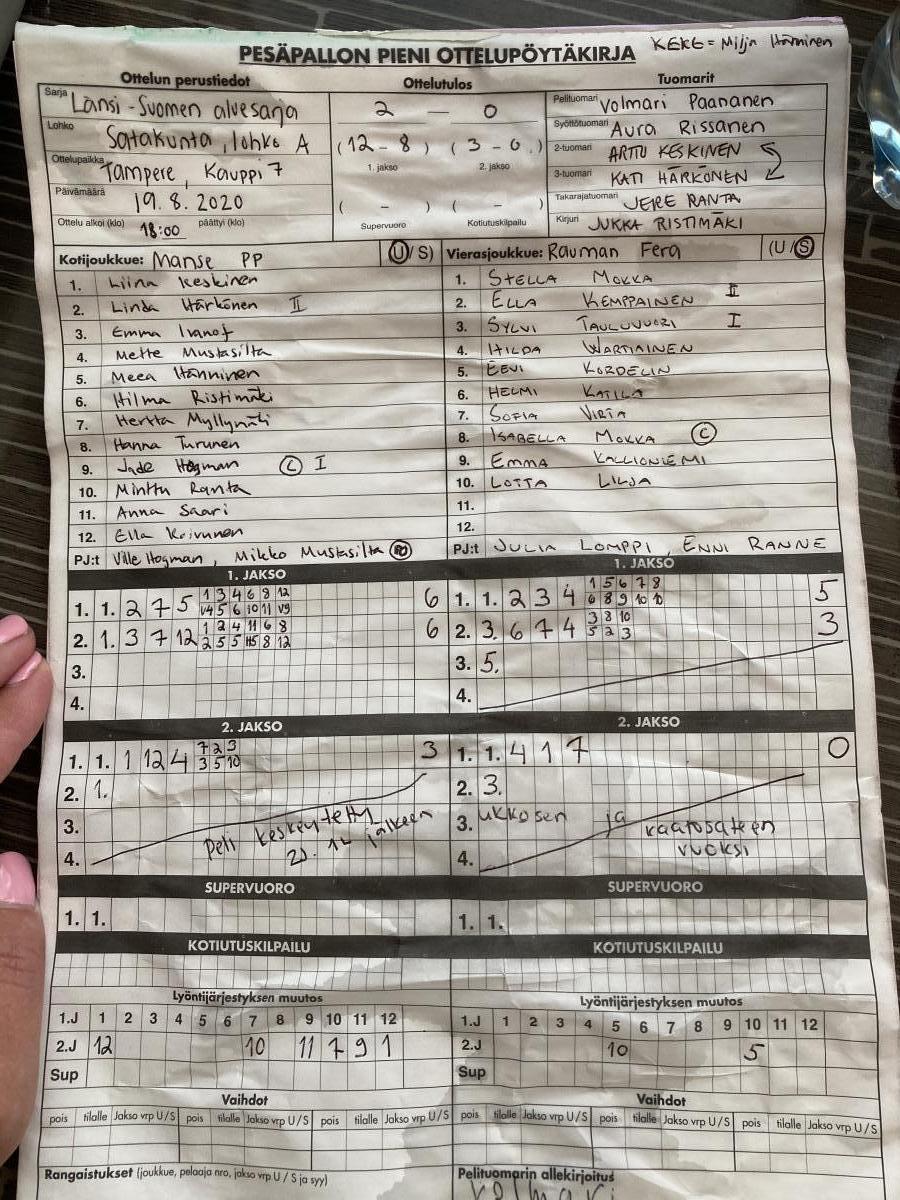 KEKE = Milja Hänninen
PESÄPALLON PIENI OTTELUPÖYTÄKIRJA
Ottelun perustiedot
Sarja Länsi-Suomen aluesarja
Lohko Satakunta, lohko A
Ottelupaikka Tampere, Kauppi 7
Päivämäärä 19.8.2020
Ottelu alkoi (klo) 18:00 päättyi (klo)
Ottelutulos
2 - 0
(12 - 8) (3 - 0)
1. jakso 2. jakso
( - ) ( - )
Supervuoro Kotiutuskilpailu
Tuomarit
Pelituomari Volmari Paananen
Syöttötuomari Aura Rissanen
2-tuomari ARTTU KESKINEN
3-tuomari KATI HÄRKÖNEN
Takarajatuomari JERE RANTA
Kirjuri JUKKA RISTIMÄKI
Kotijoukkue: Manse PP (U/S)
1. Liina Keskinen
2. Linda Härkönen II
3. Emma Ivanof
4. Mette Mustasilta
5. Meea Hänninen
6. Hilma Ristimäki
7. Hertta Myllymäki
8. Hanna Turunen
9. Jade Hogman C I
10. Minttu Ranta
11. Anna Saari
12. Ella Koivunen
PJ:t Ville Hogman, Mikko Mustasilta
Vierasjoukkue: Rauman Fera (U/S)
1. STELLA MOKKA
2. ELLA KEMPPAINEN II
3. SYLVI TAULUVUORI I
4. HILDA WARTIAINEN
5. EEVI KORDELIN
6. HELMI KATILA
7. SOFIA VIRTA
8. ISABELLA MOKKA C
9. EMMA KALLIONIEMI
10. LOTTA LILJA
11.
12.
PJ:t JULIA LOMPPI, ENNI RANNE
1. JAKSO
1. 1. 2 7 5 1 3 4 6 8 12 6
V4 5 6 10 11 V9
2. 1. 3 7 12 1 2 4 11 6 8 6
2 5 5 8 12
3.
4.
1. JAKSO
1. 1. 2 3 4 1 5 6 7 8 5
6 8 9 10 10
2. 3. 6 7 4 3 8 10 3
5 2 3
3. 5.
4.
2. JAKSO
1. 1. 1 12 4 7 2 3 3
3 5 10
2. 1.
3.
4.
Peli keskeytetty
20.12 jälkeen
2. JAKSO
1. 1. 4 1 7 0
2. 3.
3. ukkosen ja kaatosateen
4. vuoksi
SUPERVUORO
1. 1.
SUPERVUORO
1. 1.
KOTIUTUSKILPAILU
KOTIUTUSKILPAILU
Lyöntijärjestyksen muutos
1.J 1 2 3 4 5 6 7 8 9 10 11 12
2.J 12 10 11 7 9 1
Sup
Lyöntijärjestyksen muutos
1.J 1 2 3 4 5 6 7 8 9 10 11 12
2.J 10 5
Sup
Vaihdot
pois tilalle Jakso vrp U/S pois tilalle Jakso vrp U/S pois tilalle Jakso vrp U/S
Vaihdot
pois tilalle Jakso vrp U/S pois tilalle Jakso vrp U/S pois tilalle Jakso vrp U/S
Rangaistukset (joukkue, pelaaja nro, jakso vrp U / S ja syy)
Pelituomarin allekirjoitus